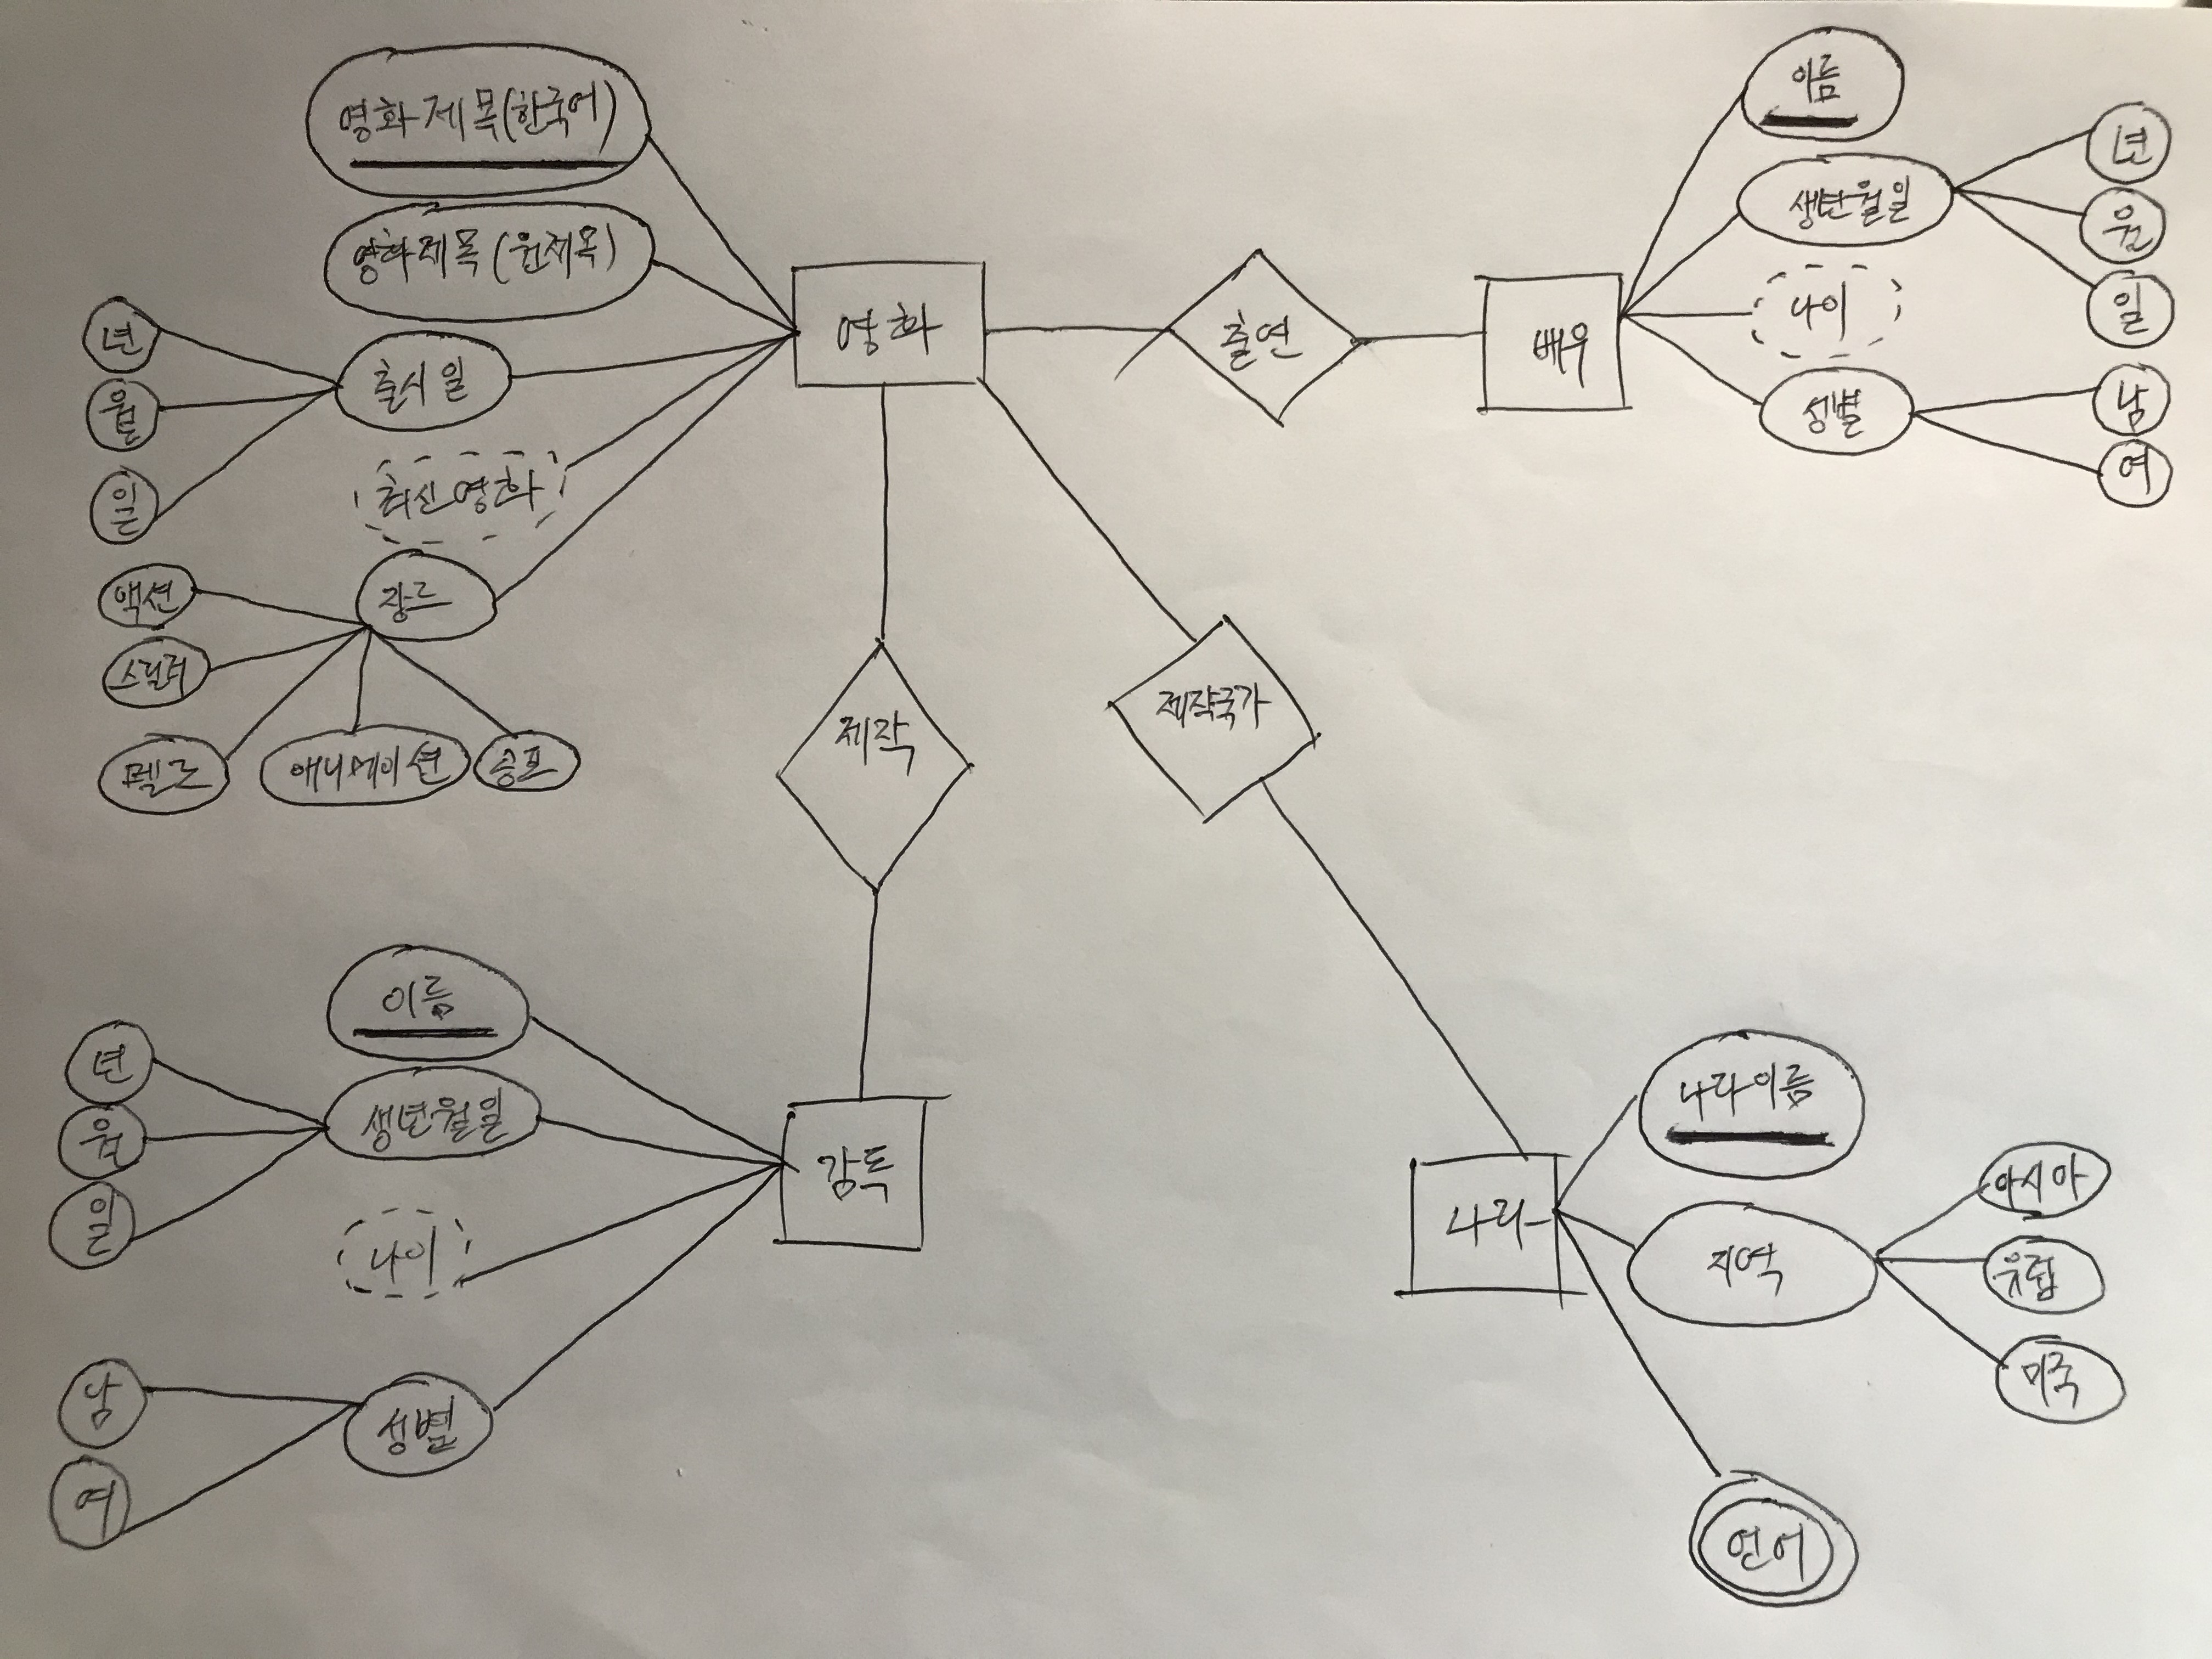 영화제목(한국어)
영화제목(원제목)
출시일
년
월
일
최신영화
장르
액션
스릴러
멜로
애니메이션
공포
영화
출연
배우
이름
생년월일
년
월
일
나이
성별
남
여
제작
제작국가
감독
이름
생년월일
년
월
일
나이
성별
남
여
나라
나라이름
지역
아시아
유럽
미국
언어